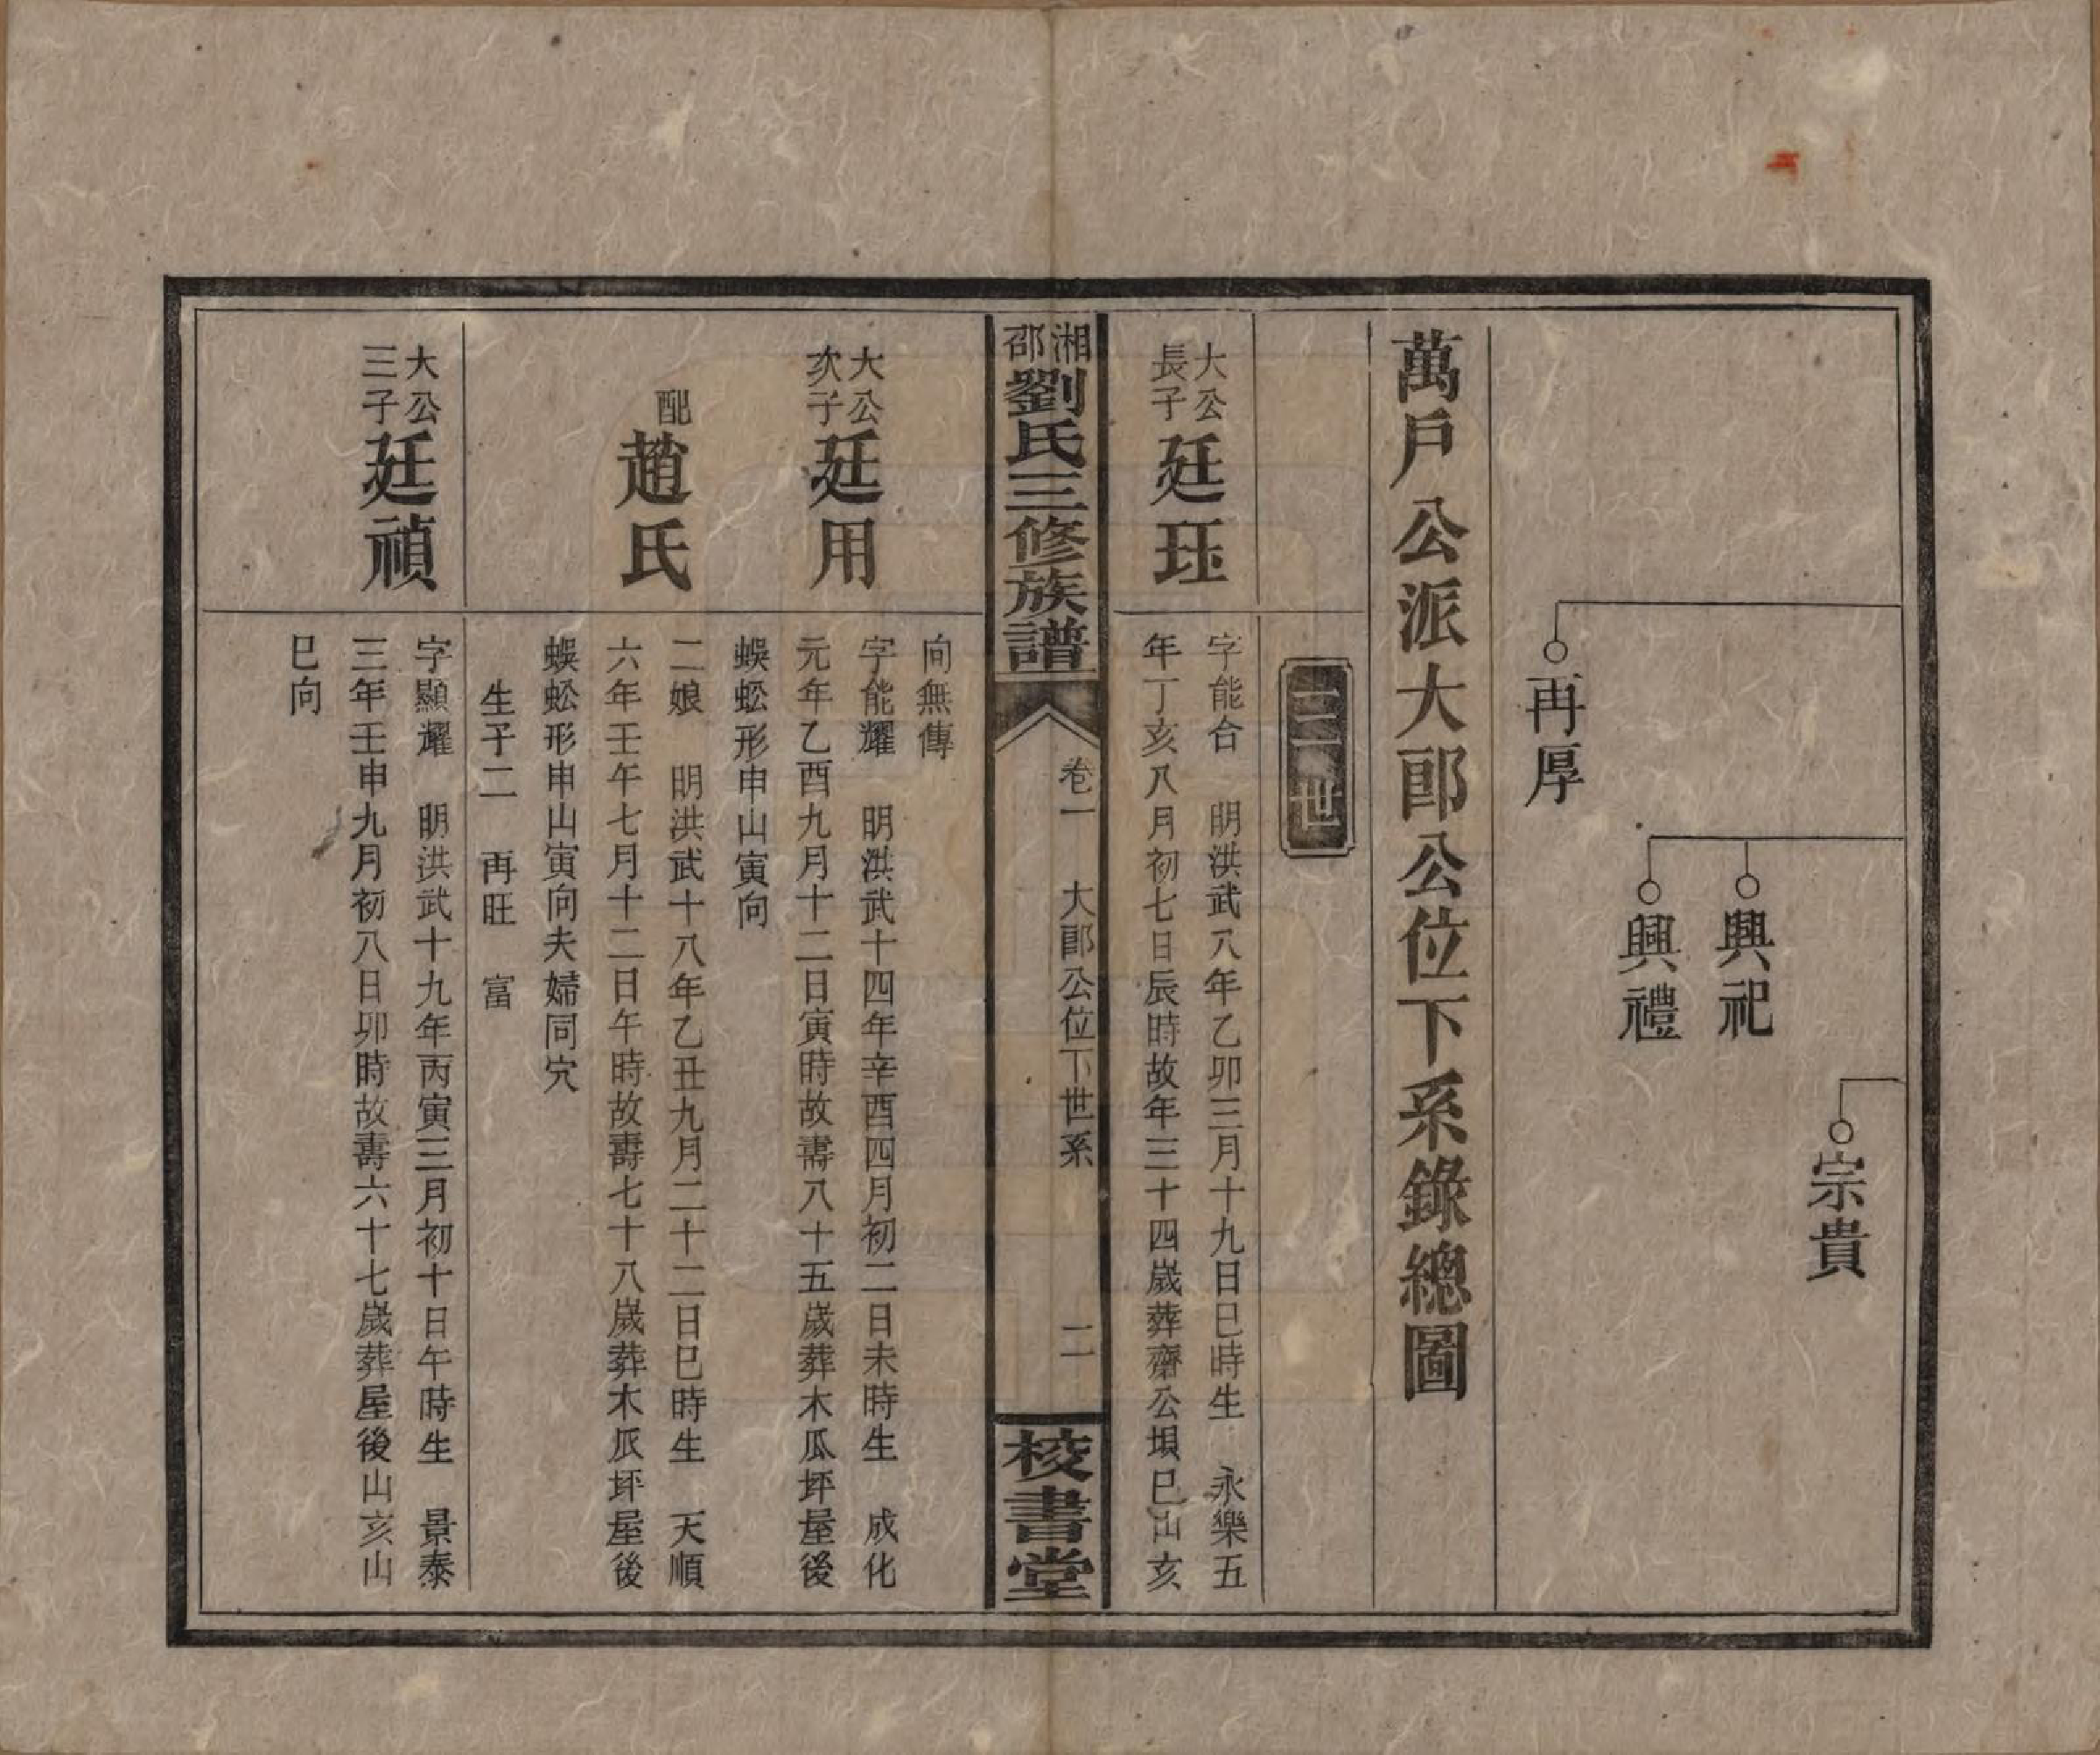 宗貴
興祀
興禮
再厚
萬戶公派大郎公位下系錄總圖
三世
大公
長子
廷珏
字能合　明洪武八年乙卯三月十九日巳時生　永樂五
年丁亥八月初七日辰時故年三十四歲葬齋公垻巳山亥
湘
邵
劉氏三修族譜
卷一　大郎公位下世系　二
校書堂
向無傳
大公
次子
廷用
字能耀　明洪武十四年辛酉四月初二日未時生　成化
元年乙酉九月十二日寅時故壽八十五歲葬木瓜坪屋後
蜈蚣形申山寅向
配
趙氏
二娘　明洪武十八年乙丑九月二十二日巳時生　天順
六年壬午七月十二日午時故壽七十八歲葬木瓜坪屋後
蜈蚣形申山寅向夫婦同穴
生子二　再旺　富
大公
三子
廷禎
字顯耀　明洪武十九年丙寅三月初十日午時生　景泰
三年壬申九月初八日卯時故壽六十七歲葬屋後山亥山
巳向